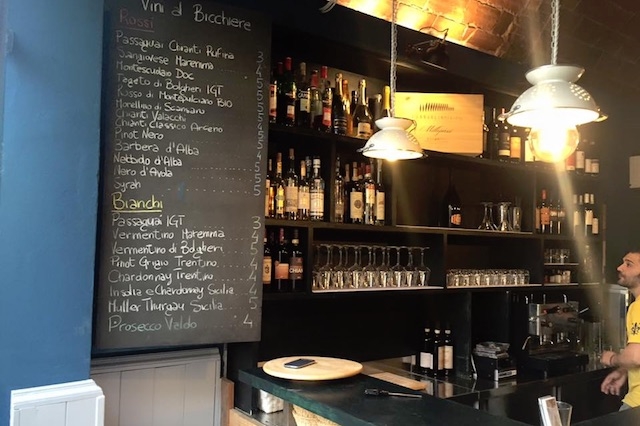 Vini al Bicchiere
Rossi
Passaguai Chianti Rufina
Sangiovese Maremma
Montescudaio Doc
Tageto di Bolgheri IGT
Rosso di Montepulciano BIO
Morellino di Scansano
Chianti Valacchi
Chianti Classico
Pinot Nero
Barbera d'Alba
Nebbiolo d'Alba
Nero d'Avola
Syrah
Bianchi
Passaguai IGT
Vermentino Maremma
Vermentino di Bolgheri
Pinot Grigio Trentino
Chardonnay Trentino
Insolia e Chardonnay Sicilia
Muller Thurgau Sicilia
Prosecco Valdo 4